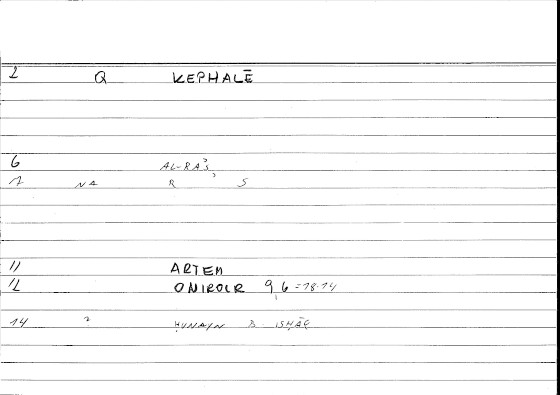 2 Q KEPHALĒ
6 AL-RAʾS
7 NA R ʾ S
11 ARTEM
12 ONIROCR 9,6 = 18.14
14 ? ḤUNAYN B. ISḤĀQ